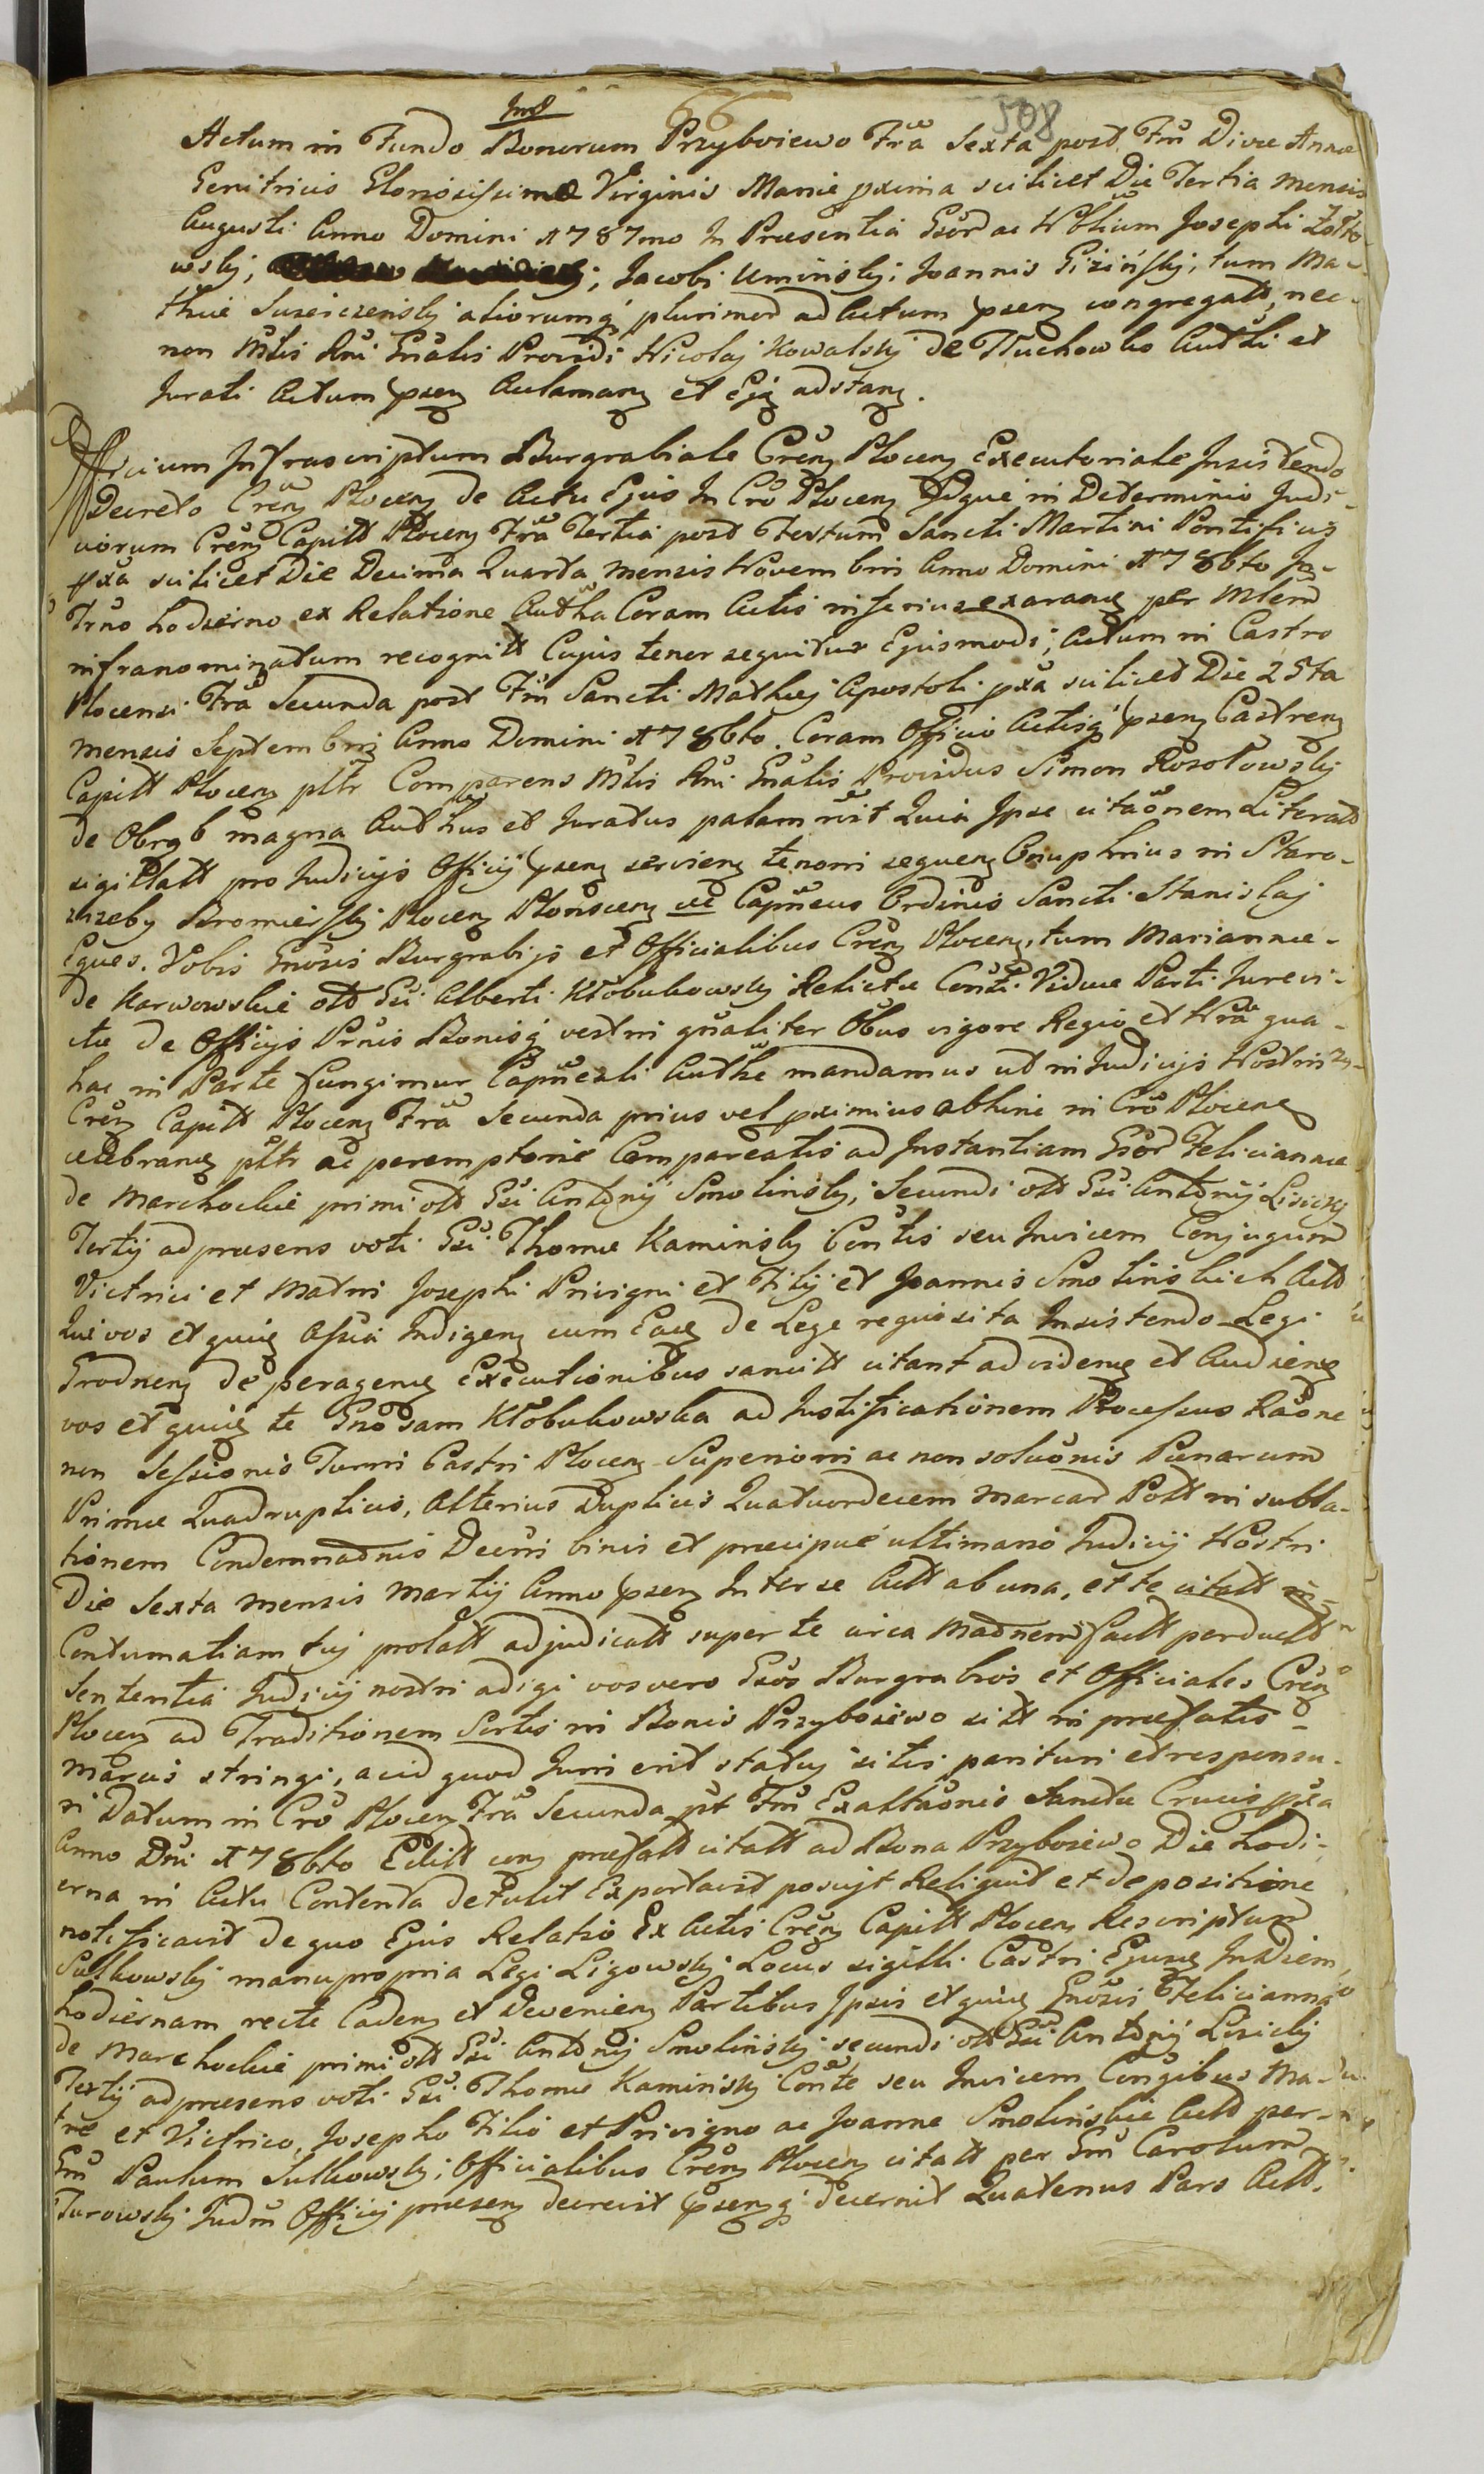 Ind
66 508
Actum in Fundo Bonorum Przyboiewo Fra Sexta post Fm Divae Annae
Genitricis Gloriosissimae Virginis Mariae pxima scilicet Die Tertia mensis
Augusti Anno Domini 1787mo In Praesentia Gsor ac Nobilium Josephi Żółto-
wskj, Jacobi Uminskj, Joannis Gizińskj, tum Ma-
thiae aliorumq plurimor ad Actum psenz congregatt, nec-
non Mtlis Rni Gnalis Providi Nicolaj Kowalskj de Tłuchowko Authi et
Jurati Actum psenz Aclamanz et Ejq adstanz.
Officium Infrascriptum Burgrabiale Crenz Plocenz Executoriale Insistendo
Decreto Crenz Plocenz de Actu Ejus In Cro Plocenz Idque in Determinio Judi-
ciorum Crenz Capitt Plocenz Fra Tertia post Festum Sancti Martini Pontificis
pxa scilicet Die Decima Quarta mensis Novembris Anno Domini 1786to In
Trno hodierno ex Relatione Autha Coram Actis inferius exarane per Mlem
infranominatum recognitt Cujus tenor sequitur Ejusmodi; Actum in Castro
Plocensi Fra Secunda post Fm Sancti Mathej Apostoli pxa scilicet Die 25ta
mensis Septembris Anno Domini 1786to. Coram Officio Actisq psenz Castrenz
Capitt Plocenz pltr Comparens Mtlis Rni Gnalis Providus Simon Rosołowskj
de Obrąb magna Authus et Juratus palam rcit Quia Ipse citaonem Literatt
sigillatt pro Judicijs Officij psenz servienz tenoris sequenz Onuphrius in Staro-
zrzeby Bromierskj Plocenz Płonscenz ve Capneus Ordinis Sancti Stanislaj
Eques. Vobis Gnosis Burgrabijs et Officialibus Crenz Plocenz, tum Mariannae
de Karwowskie ott Gsi Alberti Kłobukowskj Relictae Consti Viduae Parti Jurevi-
ctae de Officijs Prnis Bonisq vestri gnaliter Obus vigore Regio et Nra qua
hac in Parte fungimur Capneali Authe mandamus ut in Judicijs Nostris
Crenz Capitt Plocenz Fra Secunda prius vel pximius abhinc in Cro Plocenz
celebrane pltr ac peremptorie Compareatis ad Instantiam Gsor Felicianae
de Marchockie primi ott Gsi Antonij Smolinskj, Secundi ott Gsi Antonij Lisickj
Tertij ad praesens voti Gsi Thomae Kaminskj Constis seu Invicem Conjugum
Victrici et Matri Josephi Privigni et Filij et Joannis Smolinskich Actt
Qui vos et quiq Assia Indigenz cum Eaq de Lege requisita Insistendo Legi
Grodnenz de peragene Executionibus sancitt citant ad videne et Audiene
vos et quiq te Gnosam Kłobukowska ad Justificationem Processus Raone
non Sessionis Turri Castri Plocenz Superiori ac non soluonis Paenarum
Primae Quadruplicis, Alterius Duplicis Quatuordecem marcar Poll in subla-
tionem Condemnaonis Decris binis et praecipue ultimario Judicij Nostri
Die Sexta mensis Martij Anno psenz Inter se Actt ab una, et te citatt in
Contumatiam tuj prolatt adjudicatt super te circa Maonem factt perductt
Sententia Judicij nostri adigi vos vero Gsos Burgrabios et Officiales Crenz
Plocenz ad Traditionem Sortis in Bonis Przyboiewo sitt in praefatis
marcis stringi, acid quod Juri erit statuj sitis parituri et responsu-
ri Datum in Cro Plocenz Fra Secunda pt Fm Exaltaonis Sanctae Crucis pxa
Anno Dni 1786to Editt praefatt citatt ad Bona Przyboiewo Die hodi-
erna in Actu Contenta detulit Exportavit posuit Reliquit et depositione
notificavit de quo Ejus Relatio Ex Actis Crenz Capitt Plocenz Rescriptum
Sutkowskj manu propria Legi Ligowskj Locus sigilli Castri Ejusq In Diem
hodiernam recte Cadenz et Devenienz Partibus Ipsis et quiq Gnosis Felicianna
de Marchockie primi ott Gsi Antonij Smolinskj secundi ott Gsi Antonij Lisickj
Tertij ad praesens voti Gsi Thomae Kaminskj Conste seu Invicem Congibus Ma-
tre et Victrico, Josepho Filio et Privigno ac Joanne Smolinskie Actt per
Gm Paulum Sutkowskj, Officialibus Crenz Plocenz citatt per Gm Carolum
Turowskj Judm Officij praesenz decrevit psenzq decernit Quatenus Pars Actt.